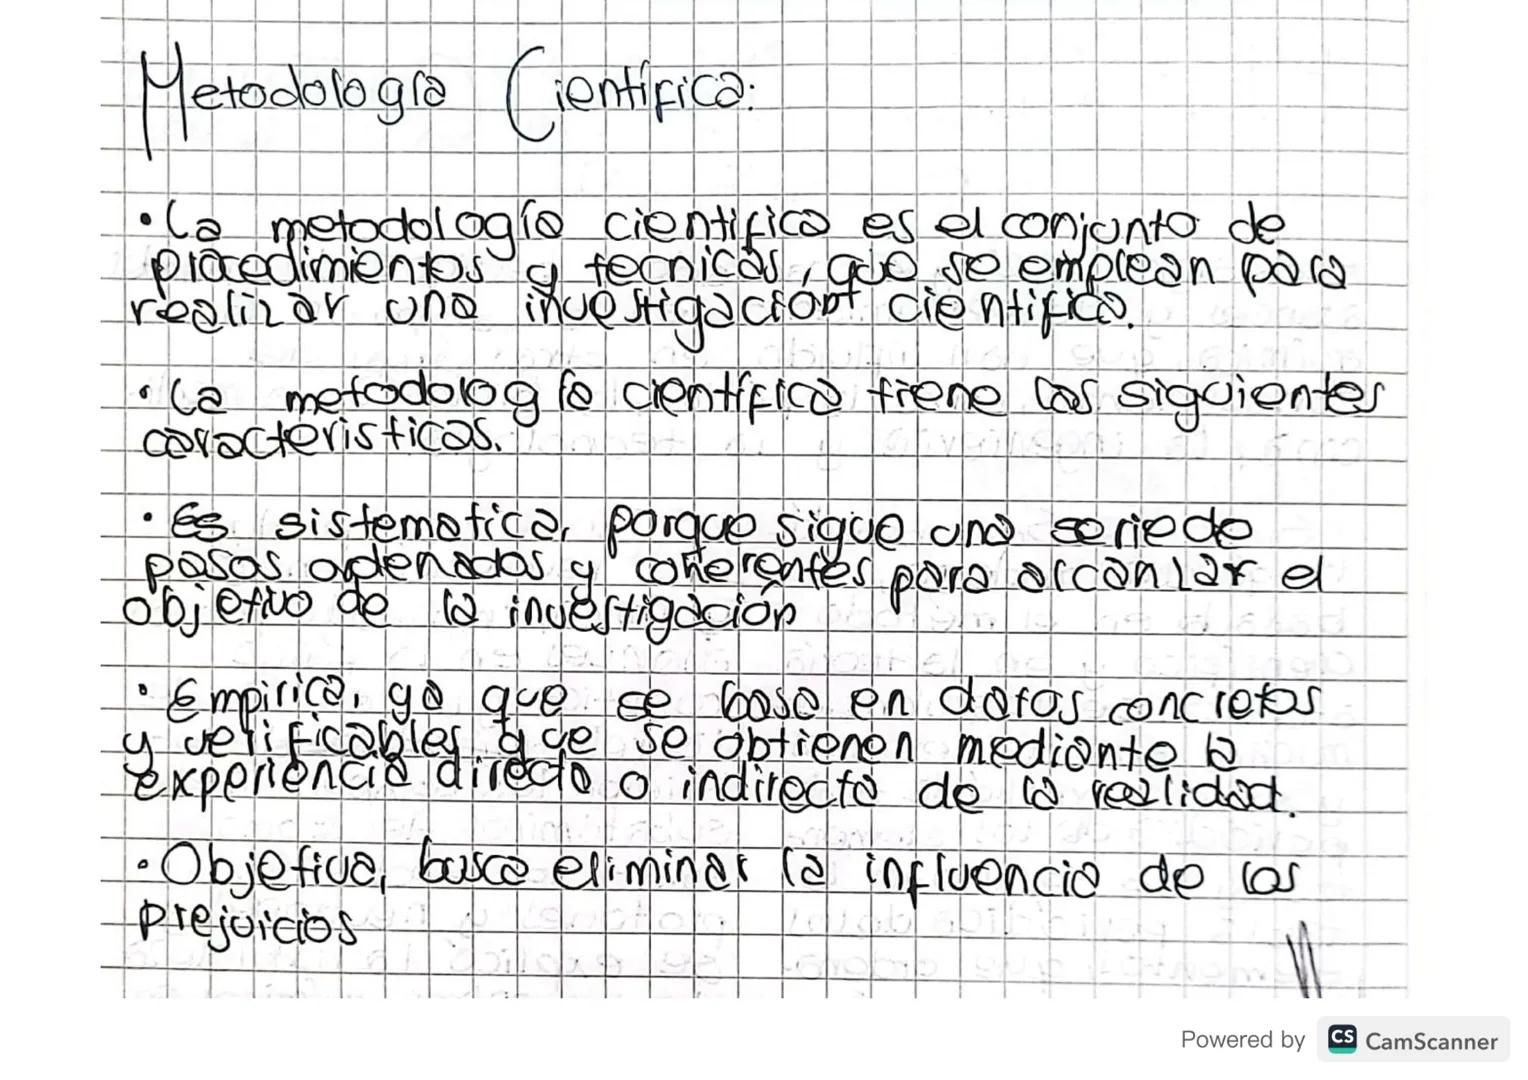 Metodología Científica:
• La metodología cientifica es el conjunto de
procedimientos y tecnicas, que se emplean para
realizar una investigación cientifica.
• La metodología científica tiene las siguientes
caracteristicas.
• Es sistematica, porque sigue una serie de
pasos ordenados y coherentes para alcanzar el
objetivo de la investigación
• Empirica, ya que se basa en datos concretos
y verificables que se obtienen mediante la
experiencia directa o indirecta de la realidad.
• Objetiva, busca eliminar la influencia de los
prejuicios
Powered by CS CamScanner